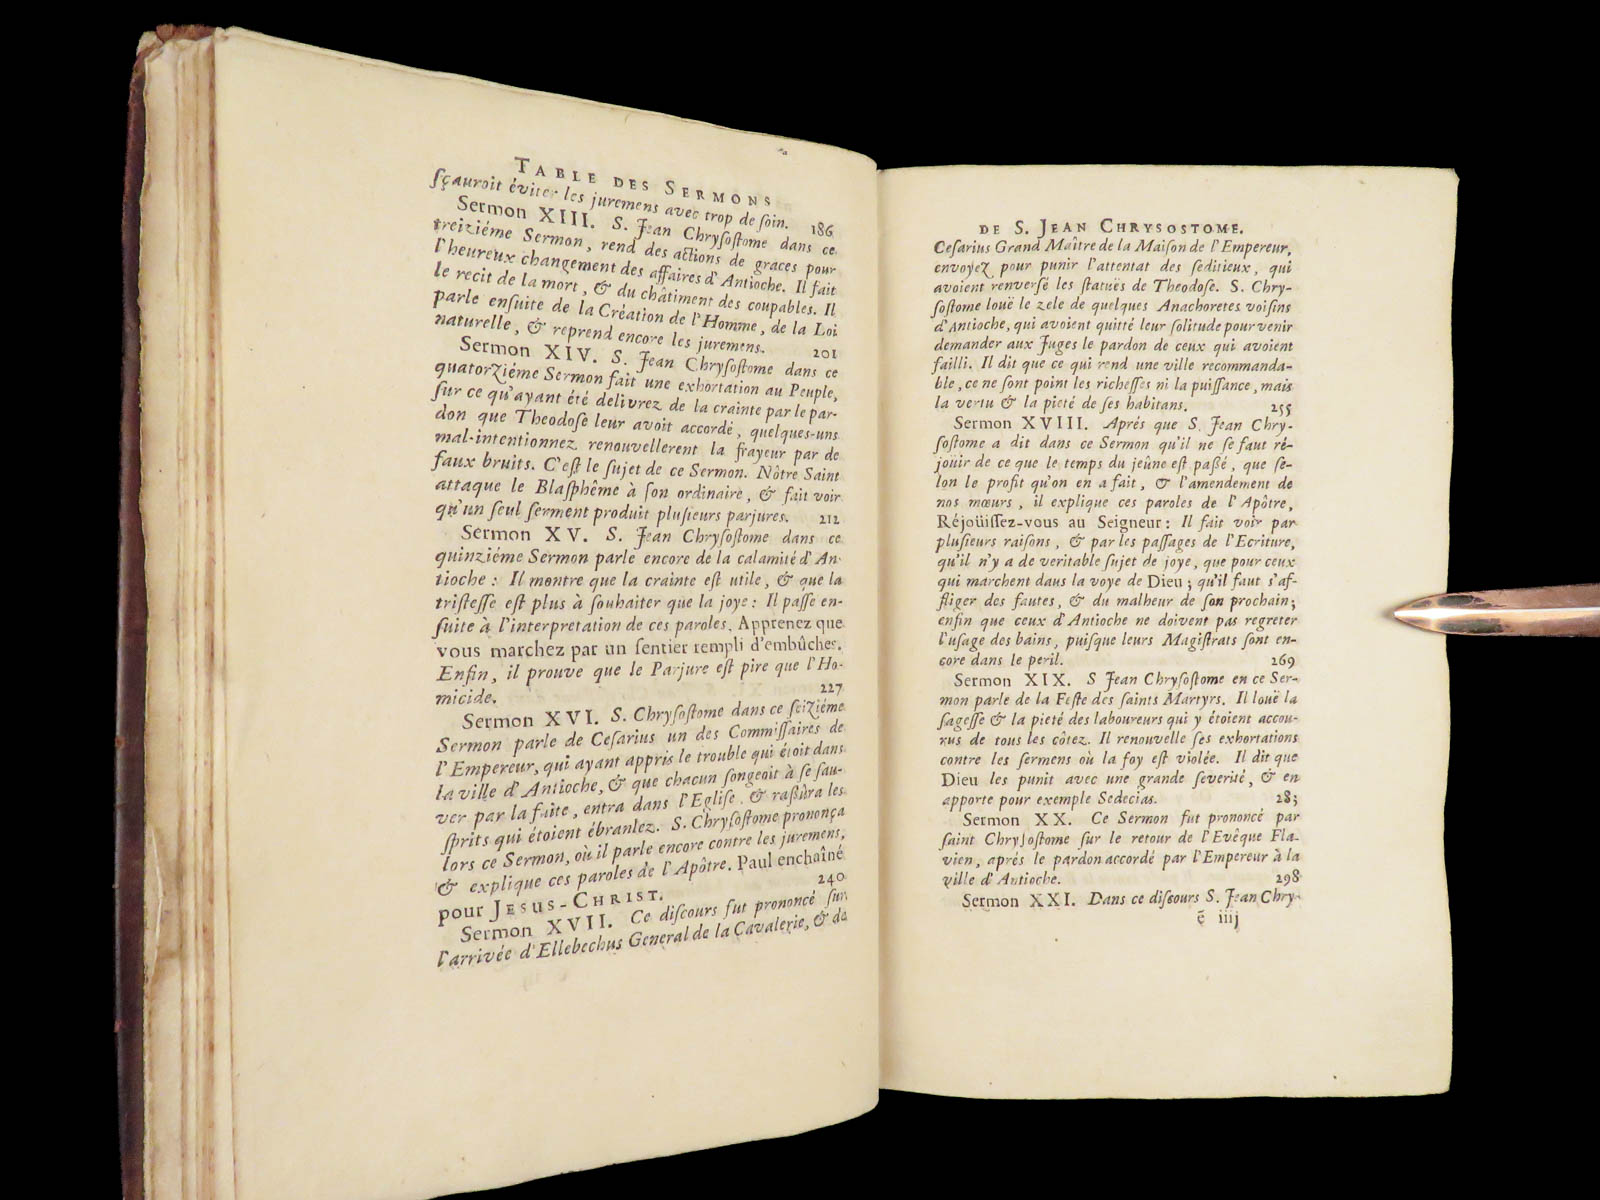 TABLE DES SERMONS
sçauroit éviter les juremens avec trop de soin. 186
Sermon XIII. S. Jean Chrysostome dans ce
treiziéme Sermon, rend des actions de graces pour
l'heureux changement des affaires d'Antioche. Il fait
le recit de la mort, & du châtiment des coupables. Il
parle ensuite de la Création de l'Homme, de la Loi
naturelle, & reprend encore les juremens. 201
Sermon XIV. S. Jean Chrysostome dans ce
quatorziéme Sermon fait une exhortation au Peuple,
sur ce qu'ayant été delivrez de la crainte par le par-
don que Theodose leur avoit accordé, quelques-uns
mal-intentionnez renouvellerent la frayeur par de
faux bruits. C'est le sujet de ce Sermon. Nôtre Saint
attaque le Blasphême à son ordinaire, & fait voir
qu'un seul serment produit plusieurs parjures. 212
Sermon XV. S. Jean Chrysostome dans ce
quinziéme Sermon parle encore de la calamité d'An-
tioche : Il montre que la crainte est utile, & que la
tristesse est plus à souhaiter que la joye : Il passe en-
suite à l'interpretation de ces paroles. Apprenez que
vous marchez par un sentier rempli d'embûches.
Enfin, il prouve que le Parjure est pire que l'Ho-
micide. 227
Sermon XVI. S. Chrysostome dans ce seiziéme
Sermon parle de Cesarius un des Commissaires de
l'Empereur, qui ayant appris le trouble qui étoit dans
la ville d'Antioche, & que chacun songeoit à se sau-
ver par la fuite, entra dans l'Eglise, & raßûra les
sprits qui étoient ébranlez. S. Chrysostome prononça
lors ce Sermon, où il parle encore contre les juremens,
& explique ces paroles de l'Apôtre. Paul enchaîné
pour JESUS-CHRIST. 240
Sermon XVII. Ce discours fut prononcé sur
l'arrivée d'Ellebechus General de la Cavalerie, & de
DE S. JEAN CHRYSOSTOME.
Cesarius Grand Maître de la Maison de l'Empereur,
envoyez pour punir l'attentat des seditieux, qui
avoient renversé les statuës de Theodose. S. Chry-
sostome louë le zele de quelques Anachoretes voisins
d'Antioche, qui avoient quitté leur solitude pour venir
demander aux Juges le pardon de ceux qui avoient
failli. Il dit que ce qui rend une ville recommanda-
ble, ce ne sont point les richesses ni la puissance, mais
la vertu & la pieté de ses habitans. 255
Sermon XVIII. Aprés que S. Jean Chry-
sostome a dit dans ce Sermon qu'il ne se faut ré-
joüir de ce que le temps du jeûne est paßé, que se-
lon le profit qu'on en a fait, & l'amendement de
nos mœurs, il explique ces paroles de l'Apôtre,
Réjoüissez-vous au Seigneur : Il fait voir par
plusieurs raisons, & par les passages de l'Ecriture,
qu'il n'y a de veritable sujet de joye, que pour ceux
qui marchent dans la voye de Dieu ; qu'il faut s'af-
fliger des fautes, & du malheur de son prochain ;
enfin que ceux d'Antioche ne doivent pas regreter
l'usage des bains, puisque leurs Magistrats sont en-
core dans le peril. 269
Sermon XIX. S Jean Chrysostome en ce Ser-
mon parle de la Feste des saints Martyrs. Il louë la
sagesse & la pieté des laboureurs qui y étoient accou-
rus de tous les côtez. Il renouvelle ses exhortations
contre les sermens où la foy est violée. Il dit que
Dieu les punit avec une grande severité, & en
apporte pour exemple Sedecias. 283
Sermon XX. Ce Sermon fut prononcé par
saint Chrysostome sur le retour de l'Evêque Fla-
vien, aprés le pardon accordé par l'Empereur à la
ville d'Antioche. 298
Sermon XXI. Dans ce discours S. Jean Chry-
ẽ iiij